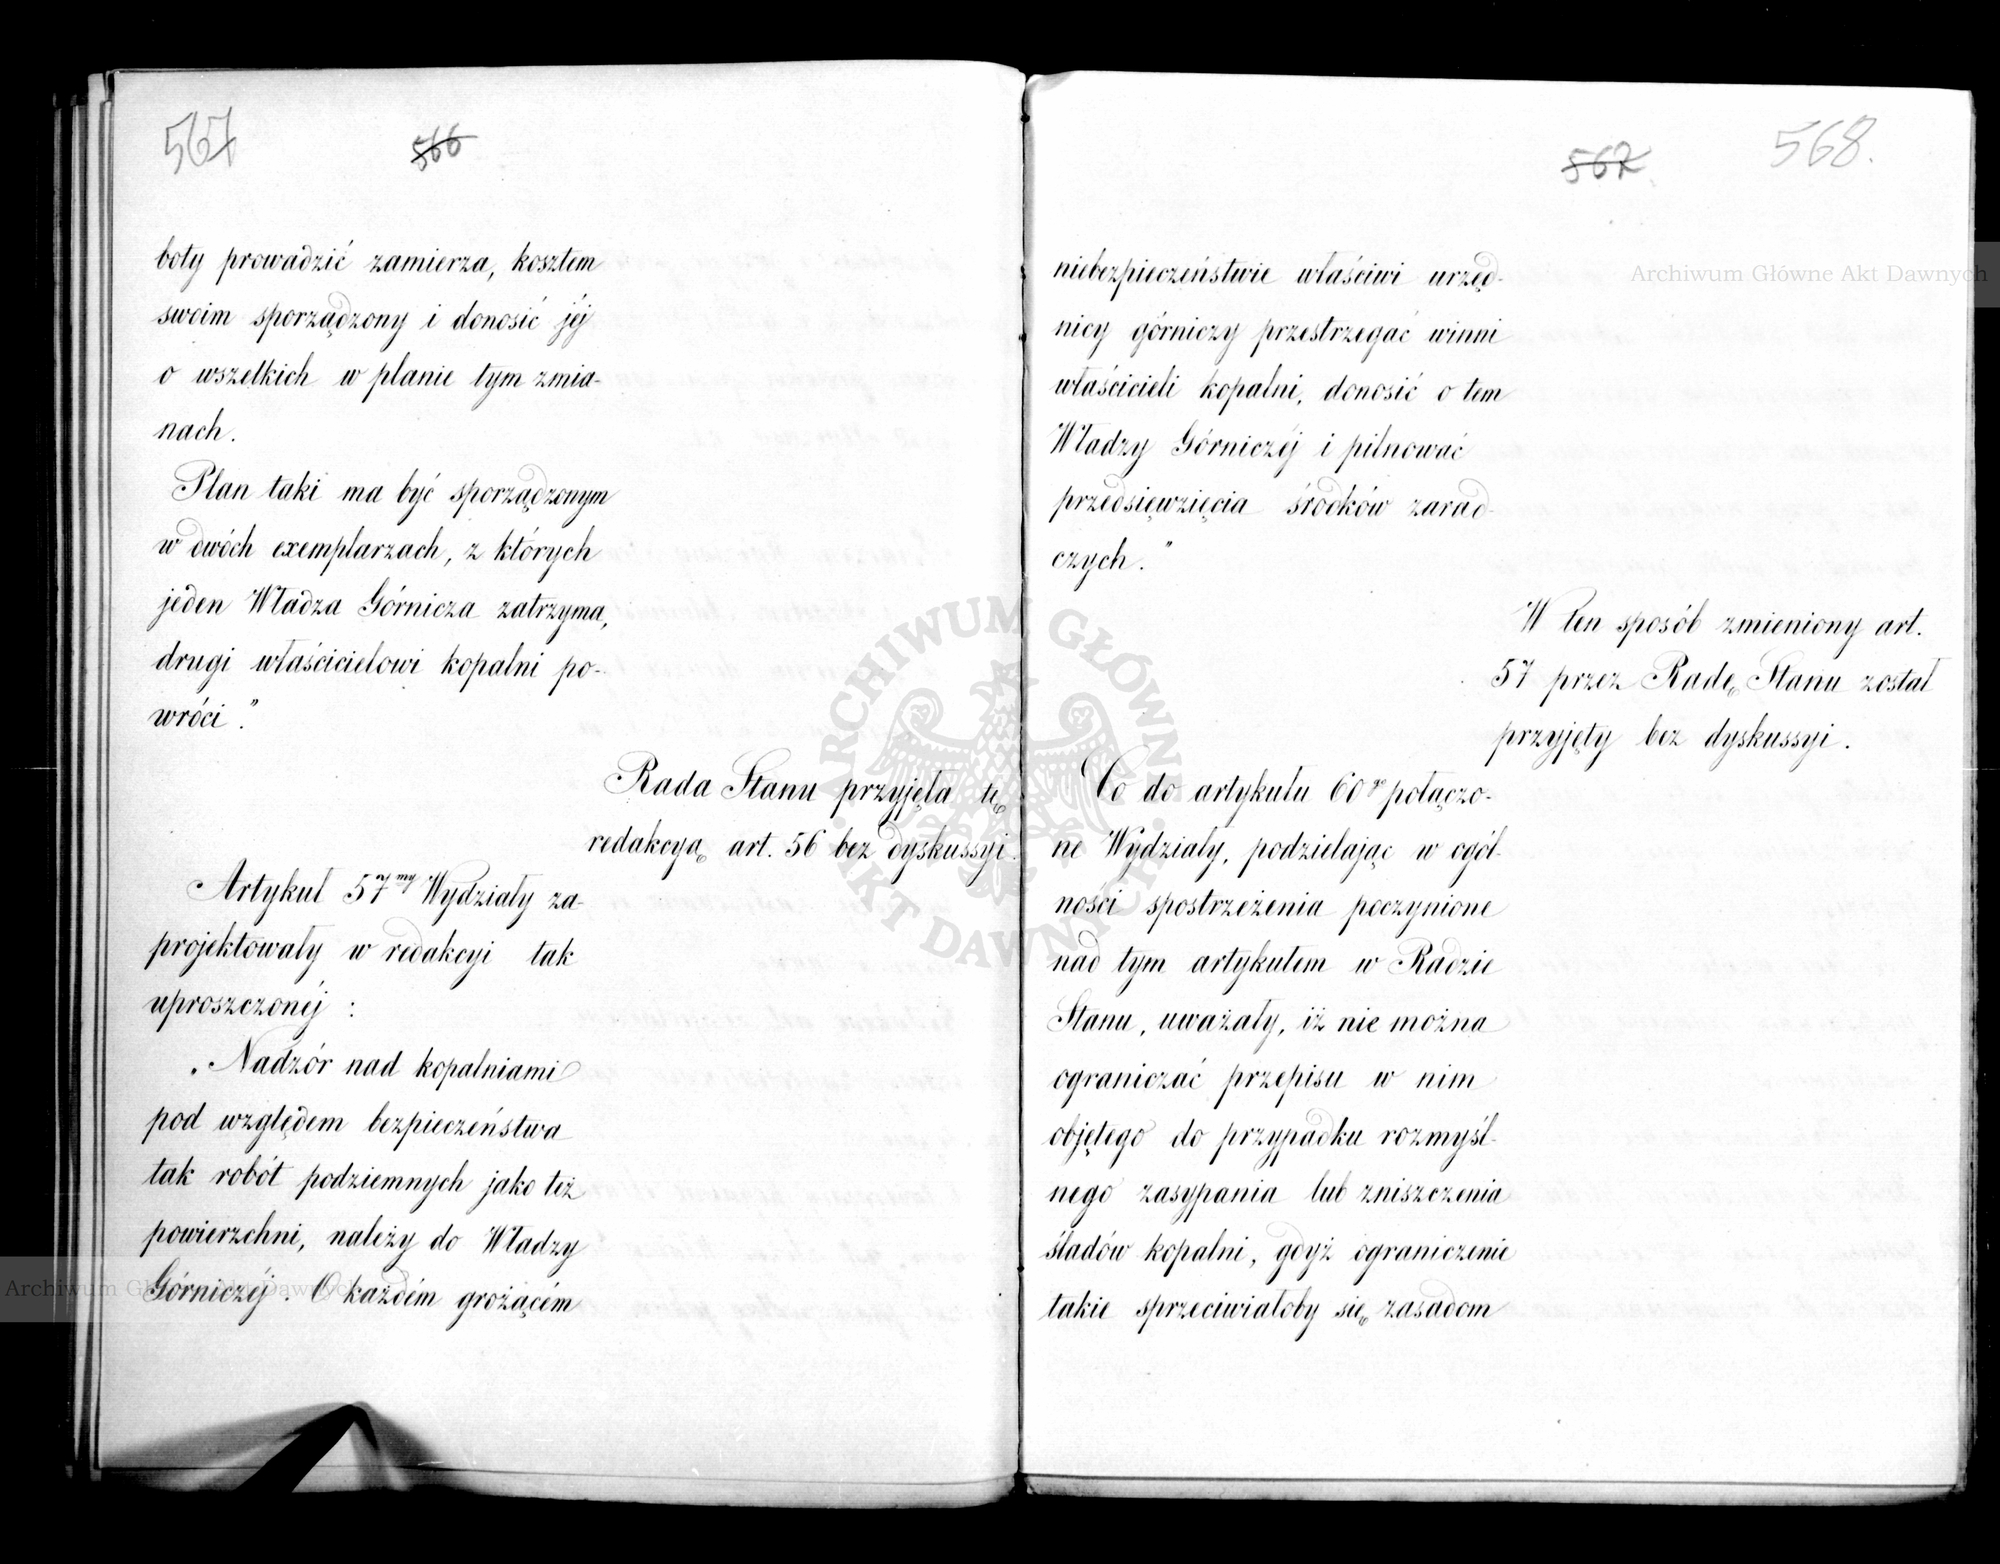 567
566
boty prowadzić zamierza, kosztem
swoim sporządzony i donosić jéj
o wszelkich w planie tym zmia-
nach.
Plan taki ma być sporządzonym
w dwóch exemplarzach, z których
jeden Władza Górnicza zatrzyma,
drugi właścicielowi kopalni po-
wróci."
Rada Stanu przyjęła tę
redakcyą art. 56 bez dyskussyi.
Artykuł 57my Wydziały za-
projektowały w redakcyi tak
uproszczonéj:
„Nadzór nad kopalniami
pod względem bezpieczeństwa
tak robót podziemnych jako też
powierzchni, należy do Władzy
Górniczéj. O każdém grożącém
568.
567.
niebezpieczeństwie właściwi urzęd-
nicy górniczy przestrzegać winni
właścicieli kopalni, donosić o tem
Władzy Górniczéj i pilnować
przedsięwzięcia środków zarad-
czych."
W ten sposób zmieniony art.
57 przez Radę Stanu został
przyjęty bez dyskussyi.
Co do artykułu 60go połączo-
ne Wydziały, podzielając w ogól-
ności spostrzeżenia poczynione
nad tym artykułem w Radzie
Stanu, uważały, iż nie można
ograniczać przepisu w nim
objętego do przypadku rozmyśl-
nego zasypania lub zniszczenia
śladów kopalni, gdyż ograniczenie
takie sprzeciwiałoby się zasadom
Archiwum Główne Akt Dawnych
Archiwum Główne Akt Dawnych
ARCHIWUM GŁÓWNE
AKT DAWNYCH